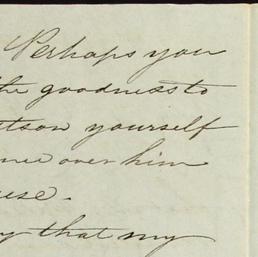 Perhaps you
the goodness to
yourself
over him
use.
that my